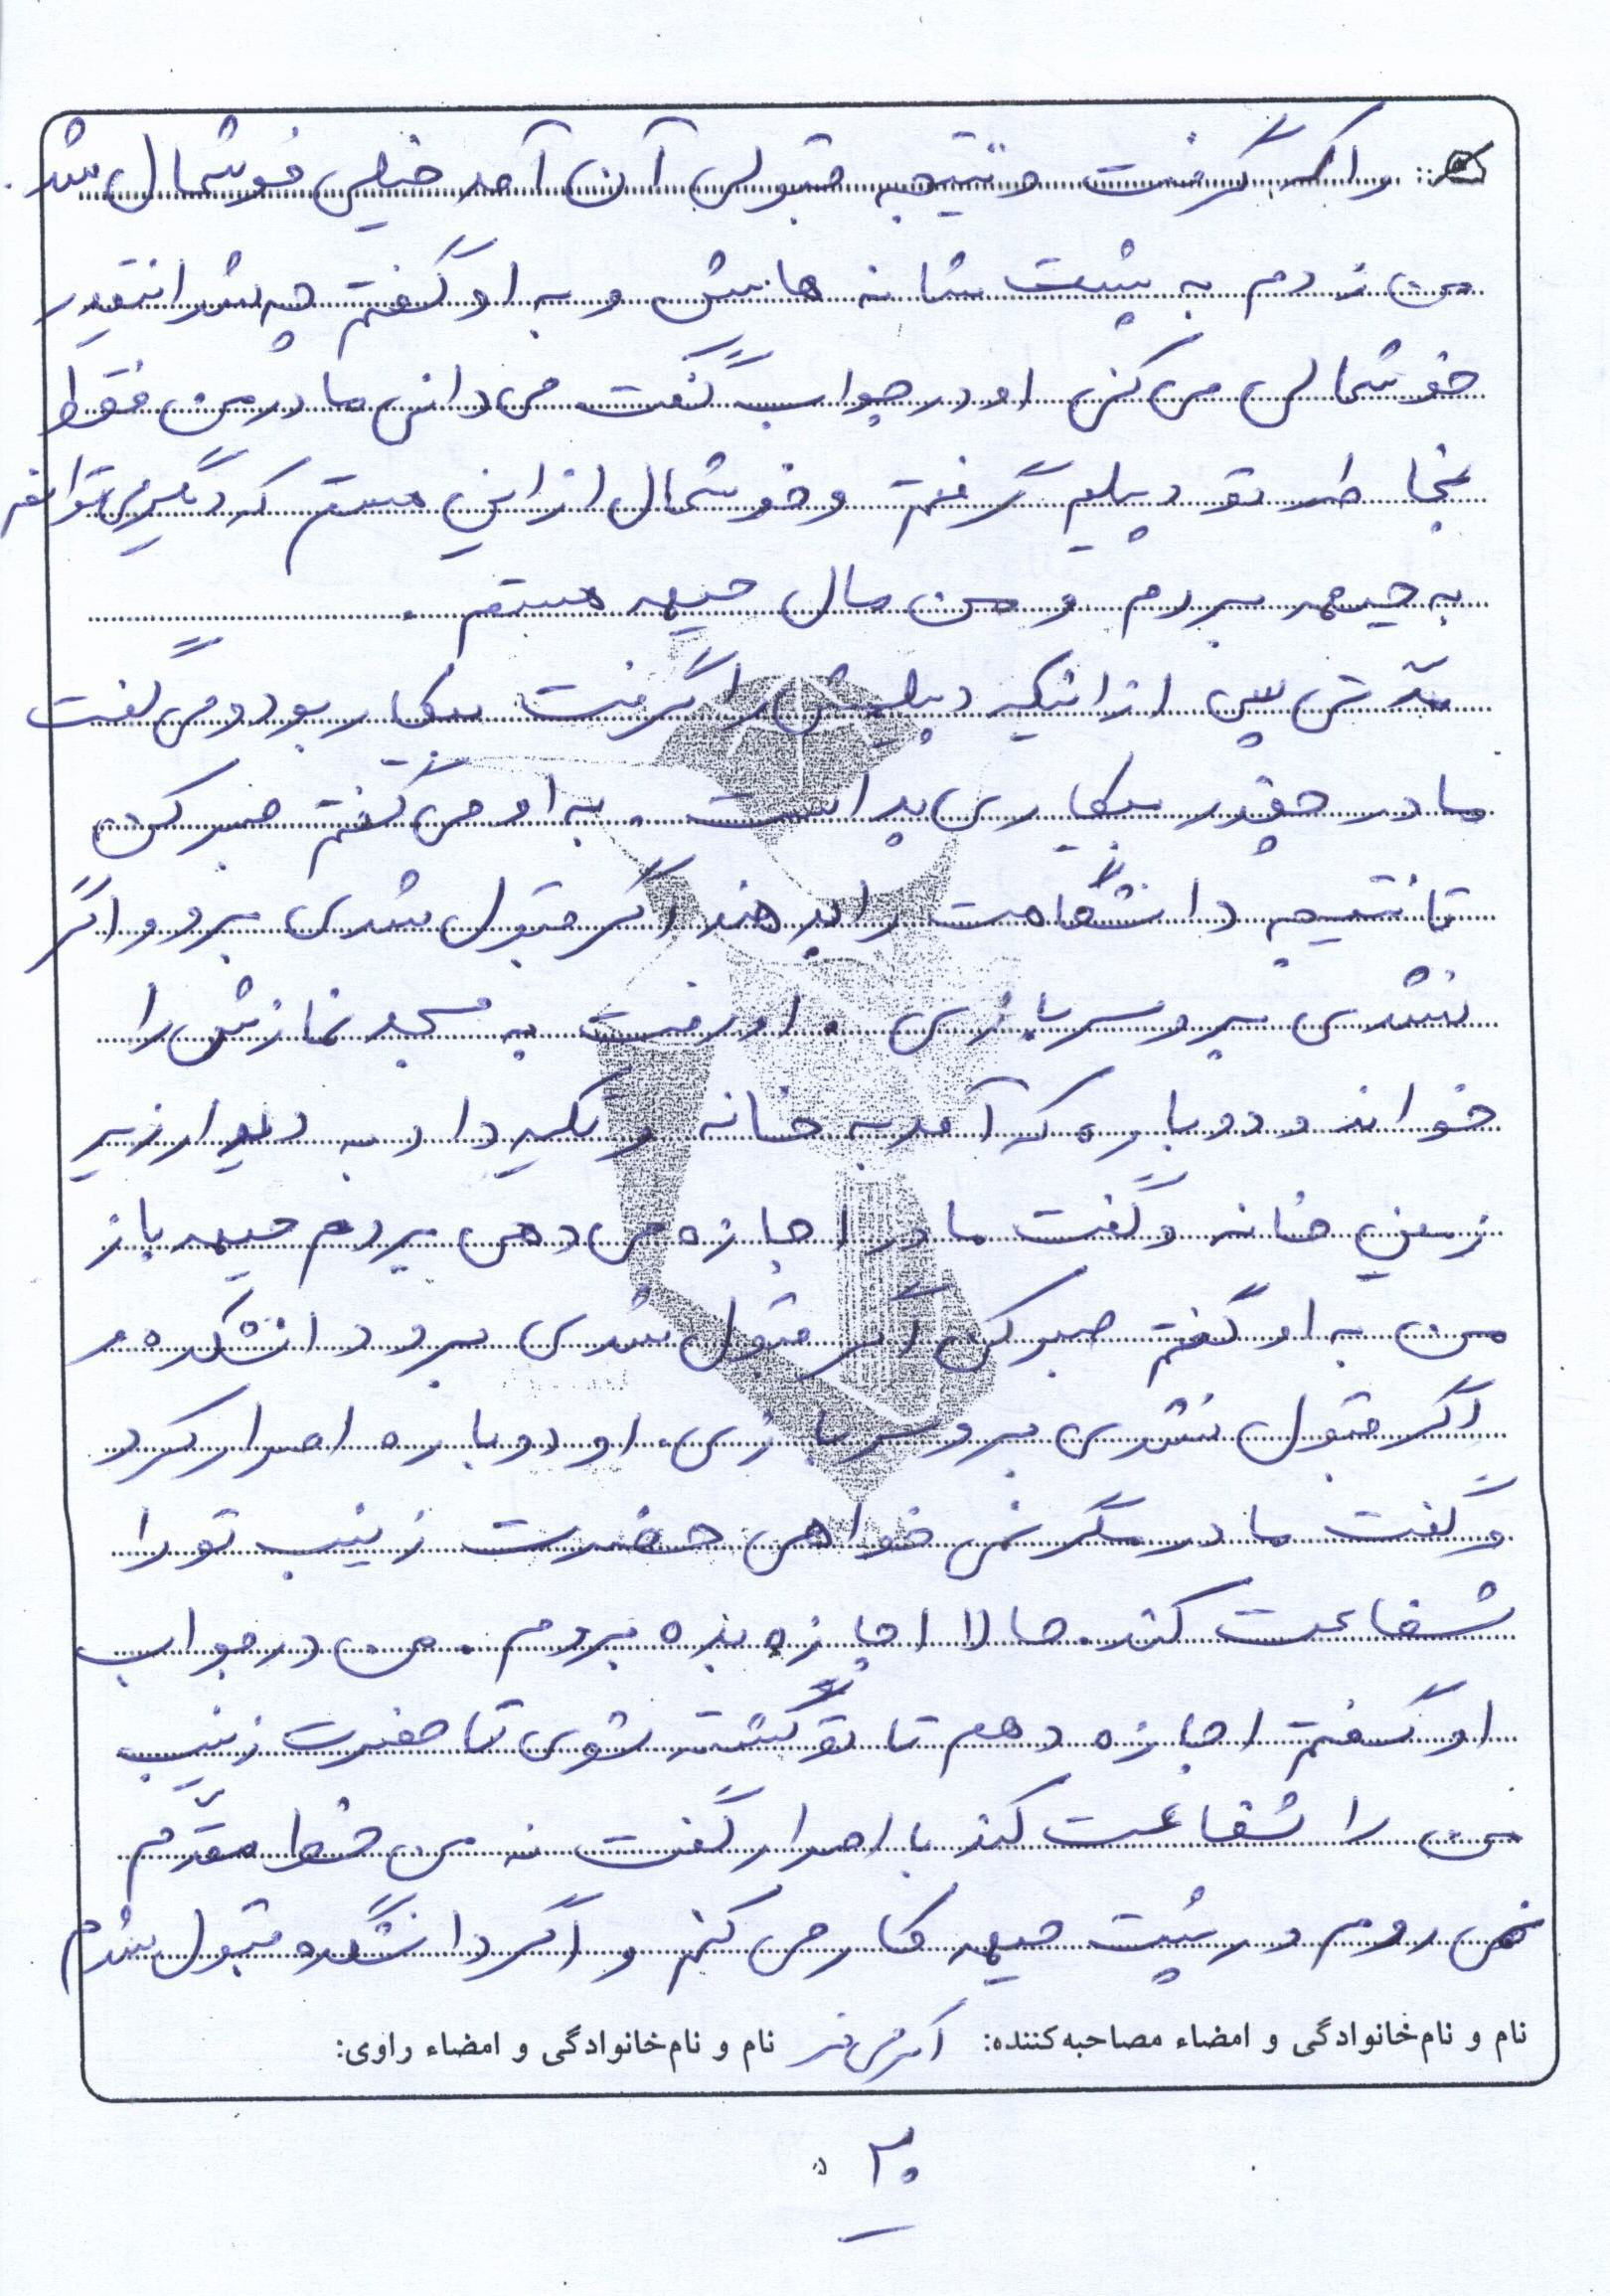 را که گرفت و نتیجه قبولی آن آمد خیلی خوشحال شد.
من زدم به پشت شانه هایش و به او گفتم چه شد انقدر
خوشحالی می کنی او در جواب گفت می دانی مادر من فقط
بخاطر تو دیپلم گرفتم و خوشحال از این هستم که دیگر می توانم
به جبهه بروم و من مال جبهه هستم .
مدتی پس از اینکه دیپلمش را گرفت بیکار بود و می گفت
مادر چقدر بیکاری بد است . به او می گفتم صبر کن
تا نتیجه دانشگاهت را بدهند اگر قبول شدی برو و اگر
نشدی برو سربازی . او رفت به مسجد نمازش را
خواند و دوباره که آمد به خانه و تکیه داد به دیوار زیر
زمین خانه و گفت مادر اجازه می دهی بروم جبهه باز
من به او گفتم صبر کن اگر قبول شدی برو دانشکده و
اگر قبول نشدی برو سربازی. او دوباره اصرار کرد
و گفت مادر مگر نمی خواهی حضرت زینب تو را
شفاعت کند. حالا اجازه بده بروم . من در جواب
او گفتم اجازه دهم تا تو کشته شوی تا حضرت زینب
من را شفاعت کند با اصرار گفت نه من خط مقدّم
نمی روم در پشت جبهه کار می کنم و اگر دانشکده قبول شدم
نام و نام‌خانوادگی و امضاء مصاحبه‌کننده: نام و نام‌خانوادگی و امضاء راوی:
۲۰